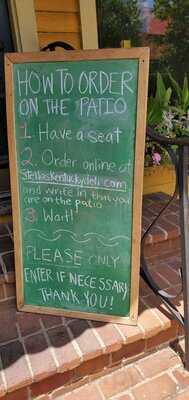 HOW TO ORDER
ON THE PATIO
1. Have a seat
2. Order online at
Stellaskentuckydeli.com
and write in that you
are on the patio
3. Wait!
PLEASE ONLY
ENTER IF NECESSARY
THANK YOU!